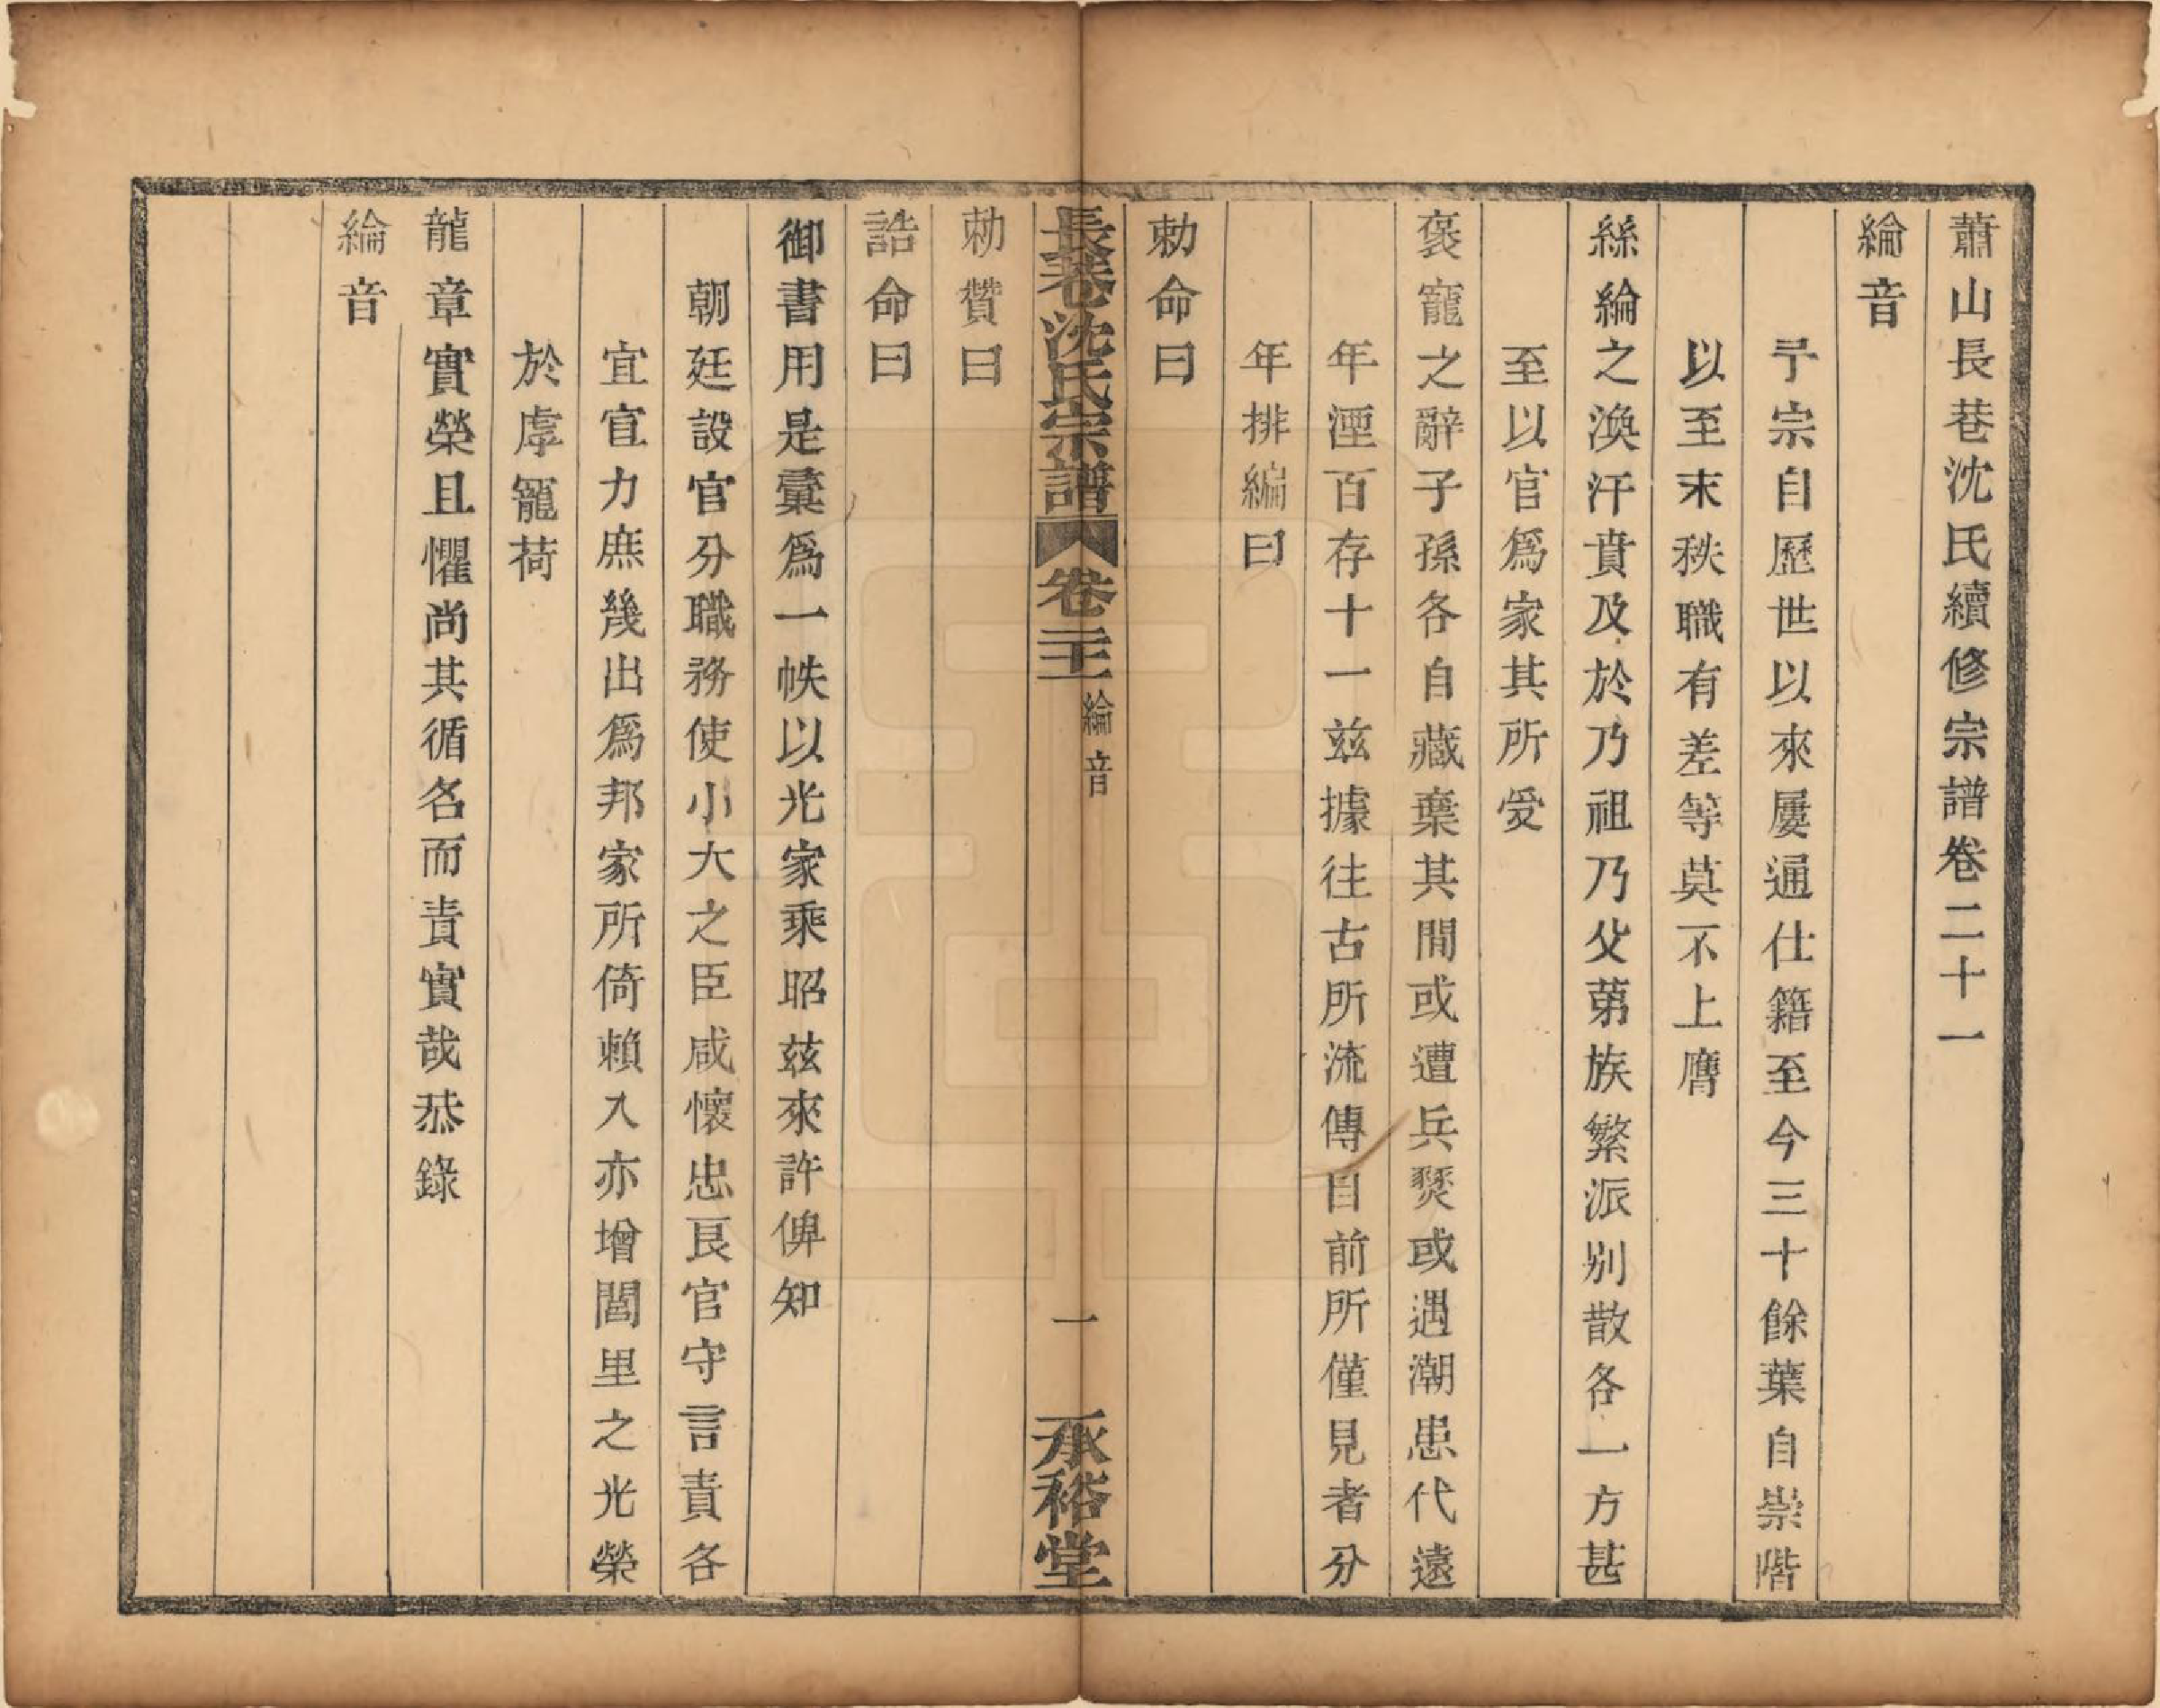 蕭山長巷沈氏續修宗譜卷二十一
綸音
予宗自歷世以來屢通仕籍至今三十餘葉自崇階
以至末秩職有差等莫不上膺
絲綸之渙汗賁及於乃祖乃父第族繁派别散各一方甚
至以官爲家其所受
褒寵之辭子孫各自藏棄其間或遭兵燹或遇潮患代遠
年湮百存十一兹據往古所流傳目前所僅見者分
年排編曰
勅命曰
長巷沈氏宗譜
卷二十一
綸音
一
承裕堂
勅贊曰
誥命曰
御書用是彙爲一帙以光家乘昭兹來許俾知
朝廷設官分職務使小大之臣咸懷忠良官守言責各
宜宣力庶幾出爲邦家所倚賴入亦增閭里之光榮
於虖寵荷
龍章實榮且懼尚其循名而責實哉恭錄
綸音